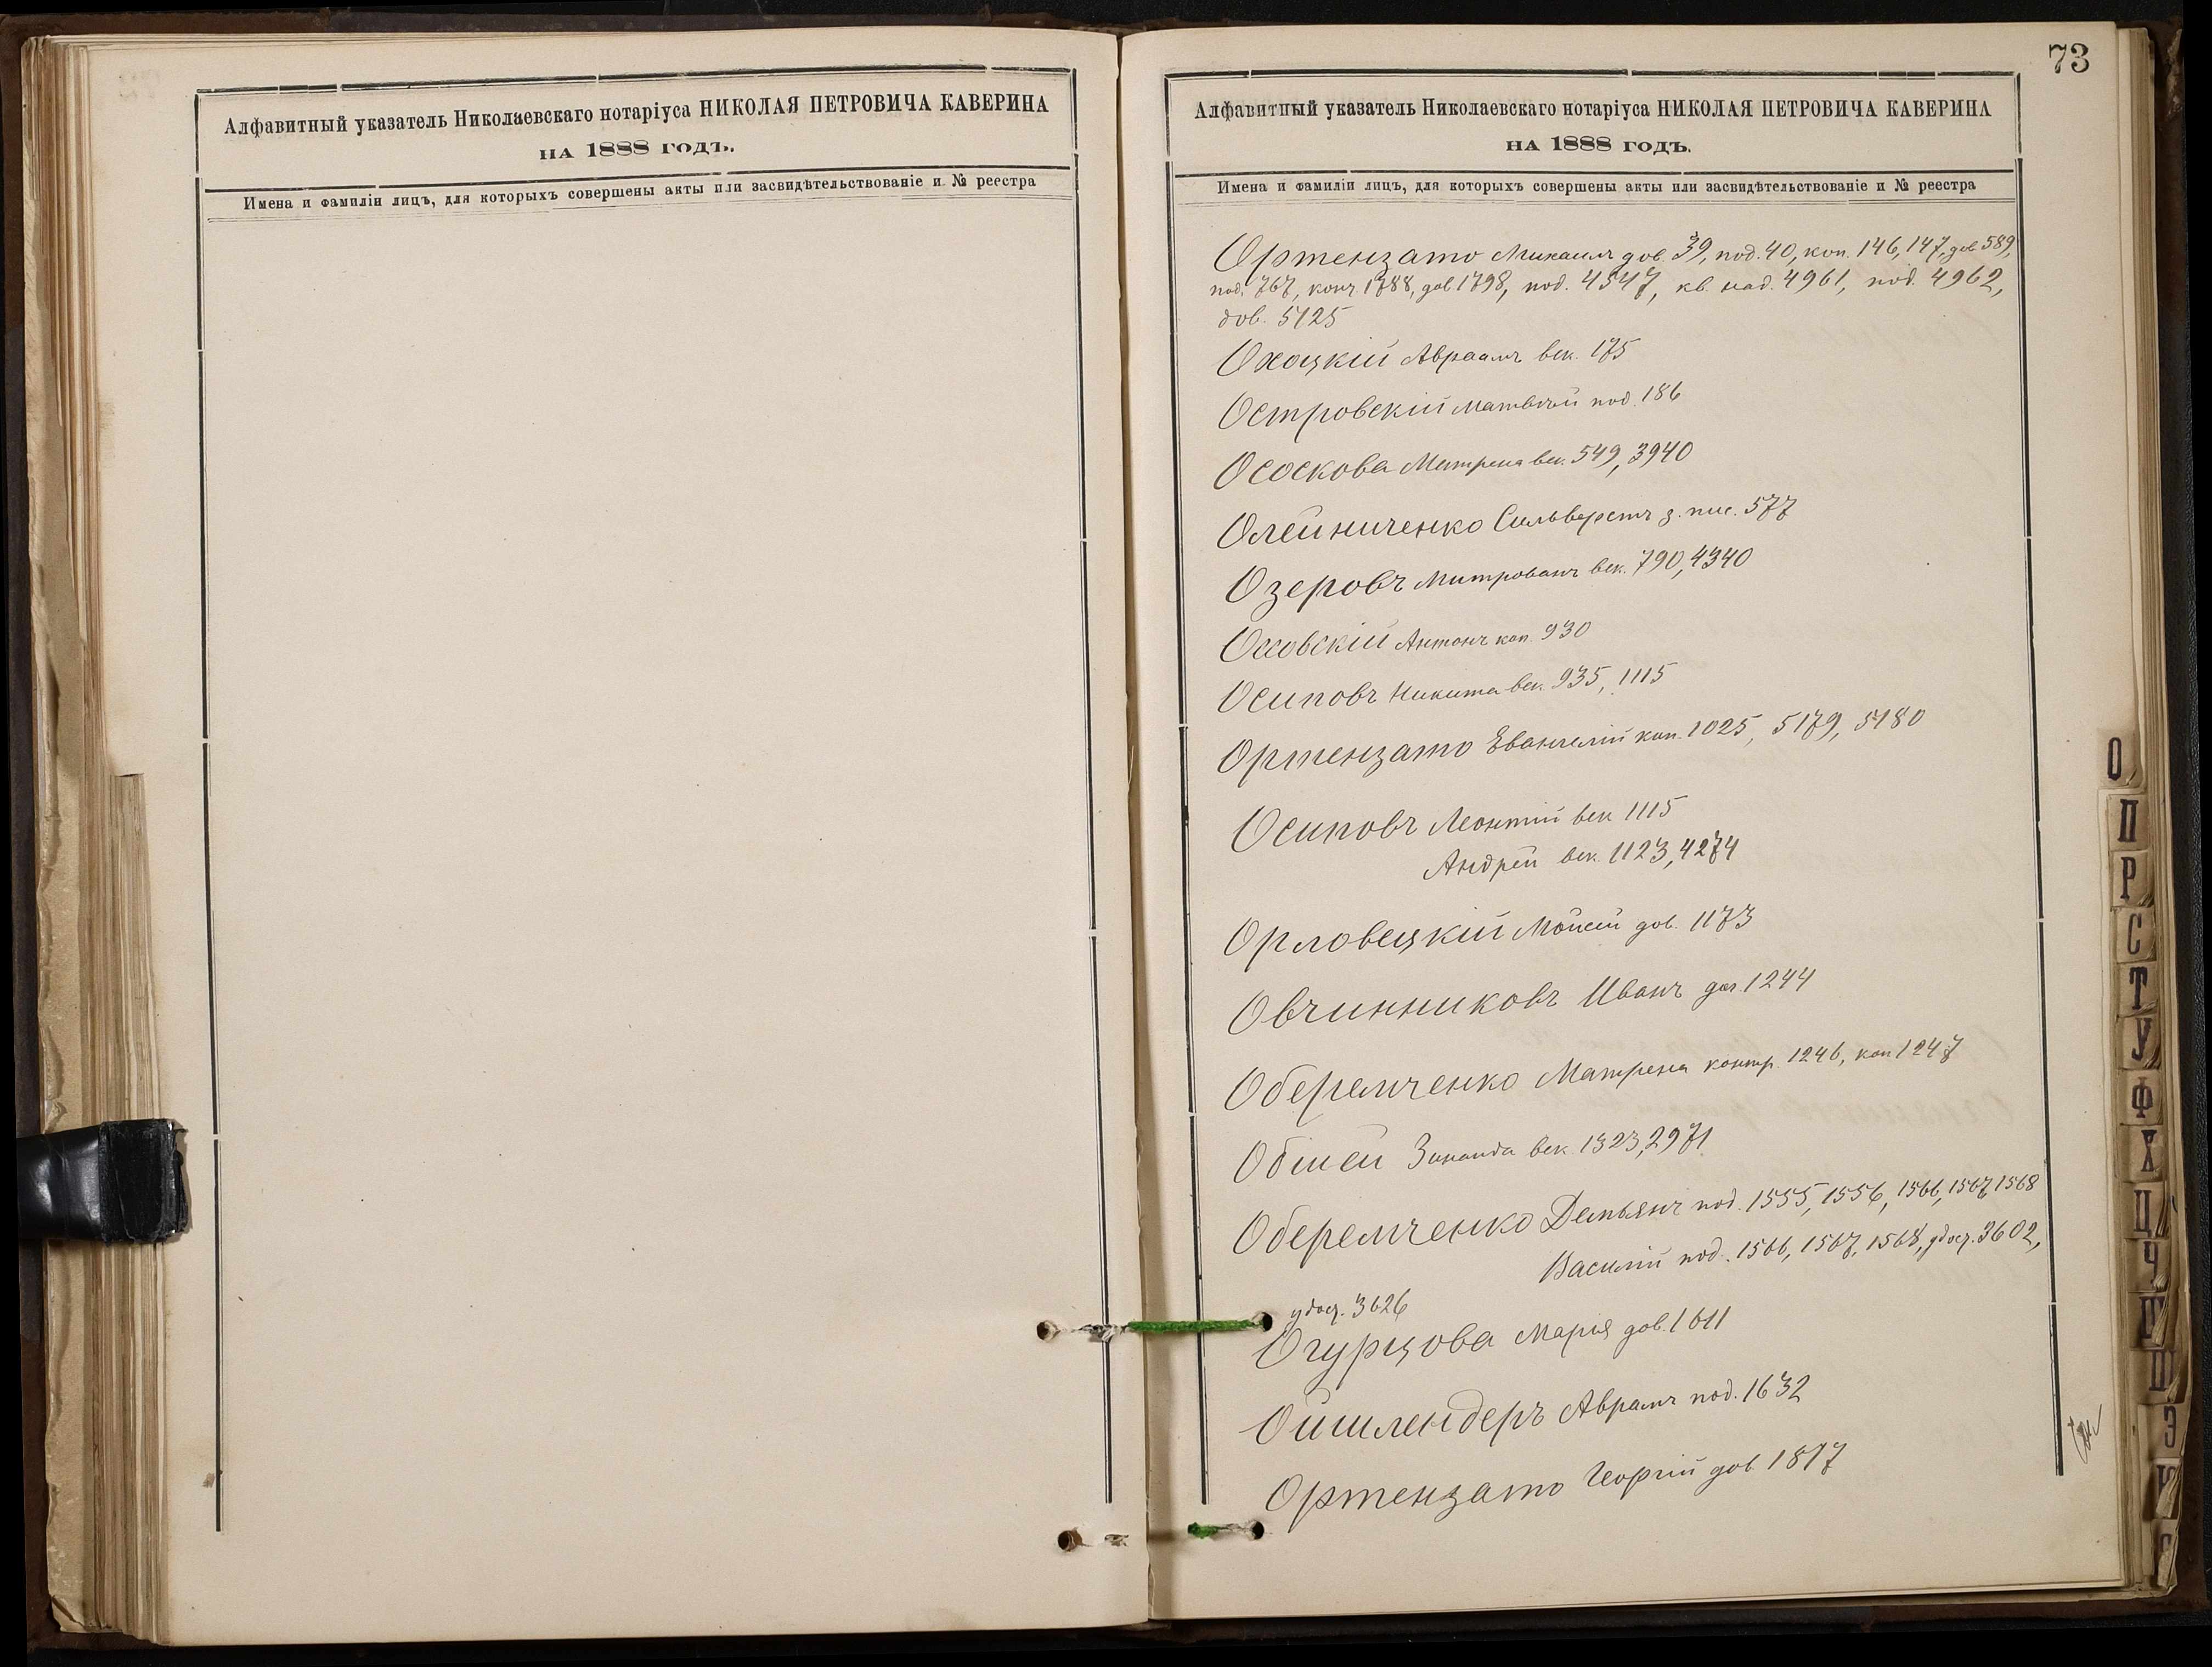 Алфавитный указатель Николаевскаго нотаріуса НИКОЛАЯ ПЕТРОВИЧА КАВЕРИНА
НА 1888 ГОДЪ.
Имена и фамиліи лицъ, для которыхъ совершены акты или засвидѣтельствованіе и № реестра
73
Алфавитный указатель Николаевскаго нотаріуса НИКОЛАЯ ПЕТРОВИЧА КАВЕРИНА
НА 1888 ГОДЪ.
Имена и фамиліи лицъ, для которыхъ совершены акты или засвидѣтельствованіе и № реестра
Ортензато Михаилъ дов. 39, под. 40, коп. 146, 147, дов 589,
под. 767, коп. 1788, дов 1798, под. 4547, кв. над. 4961, под. 4962,
дов. 5125
Охоцкій Авраамъ век. 175
Островскій Матвѣй под. 186
Ососкова Матрена век. 549, 3940
Олейниченко Сильверстъ з. пис. 577
Озеровъ Митрованъ век. 790, 4340
Оссовскій Антонъ коп. 930
Осиповъ Никита век. 935, 1115
Ортензато Евангелій коп. 1025, 5179, 5180
Осиповъ Леонтій век 1115
Андрей век. 1123, 4274
Орловецкій Мойсей дов. 1173
Овчинниковъ Иванъ дог 1244
Оберемченко Матрена контр. 1246, коп 1247
Обшей Зинаида век. 1323, 2971
Оберемченко Демьянъ под. 1555, 1556, 1566, 1567, 1568
Василій под. 1566, 1567, 1568, удост. 3602,
удост. 3626
Огурцова Марія дов. 1611
Ойшлендеръ Аврамъ под. 1632
Ортензато Георгій дов 1817
О
П
Р
С
Т
У
Ф
Х
Ц
Ч
Ш
Щ
Э